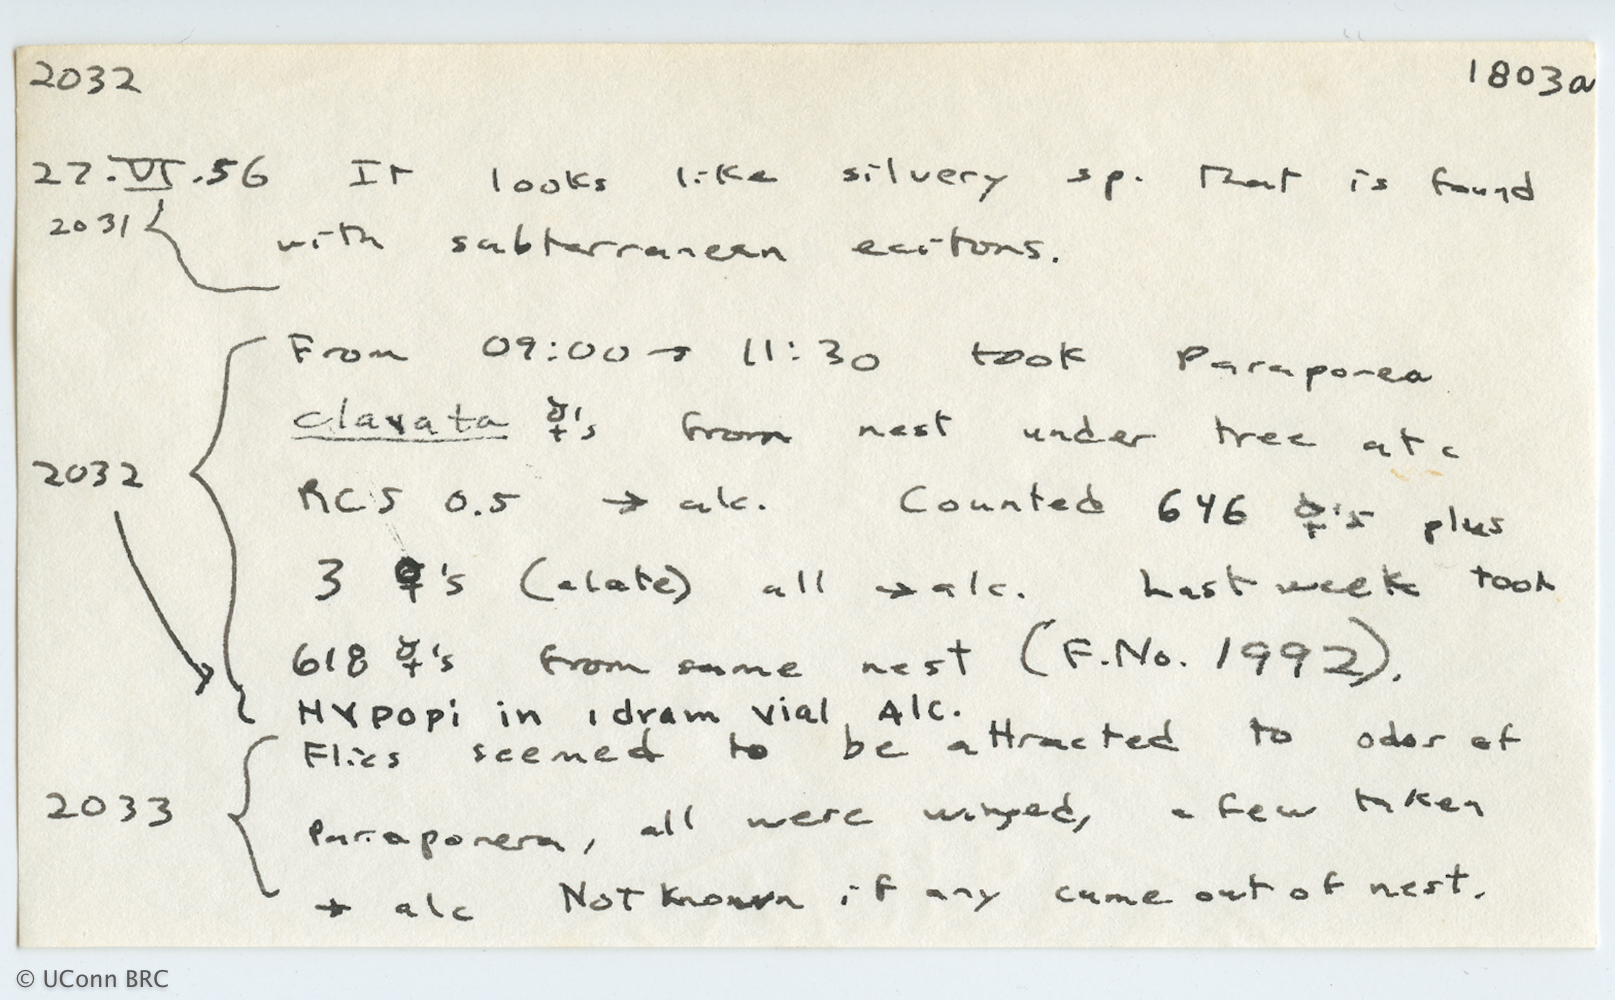 2032 1803a
27.VI.56 It looks like silvery sp. that is found
2031 with subterranean ecitons.
From 09:00 → 11:30 took Paraponea
clavata ☿'s from nest under tree at c
2032 RCS 0.5 → alc. Counted 646 ☿'s plus
3 ♀'s (alate) all → alc. Last week took
618 ☿'s from same nest (F.No. 1992).
Hypopi in 1 dram vial, Alc.
Flies seemed to be attracted to odor of
2033 Paraponera, all were winged, a few taken
→ alc Not known if any came out of nest.
© UConn BRC